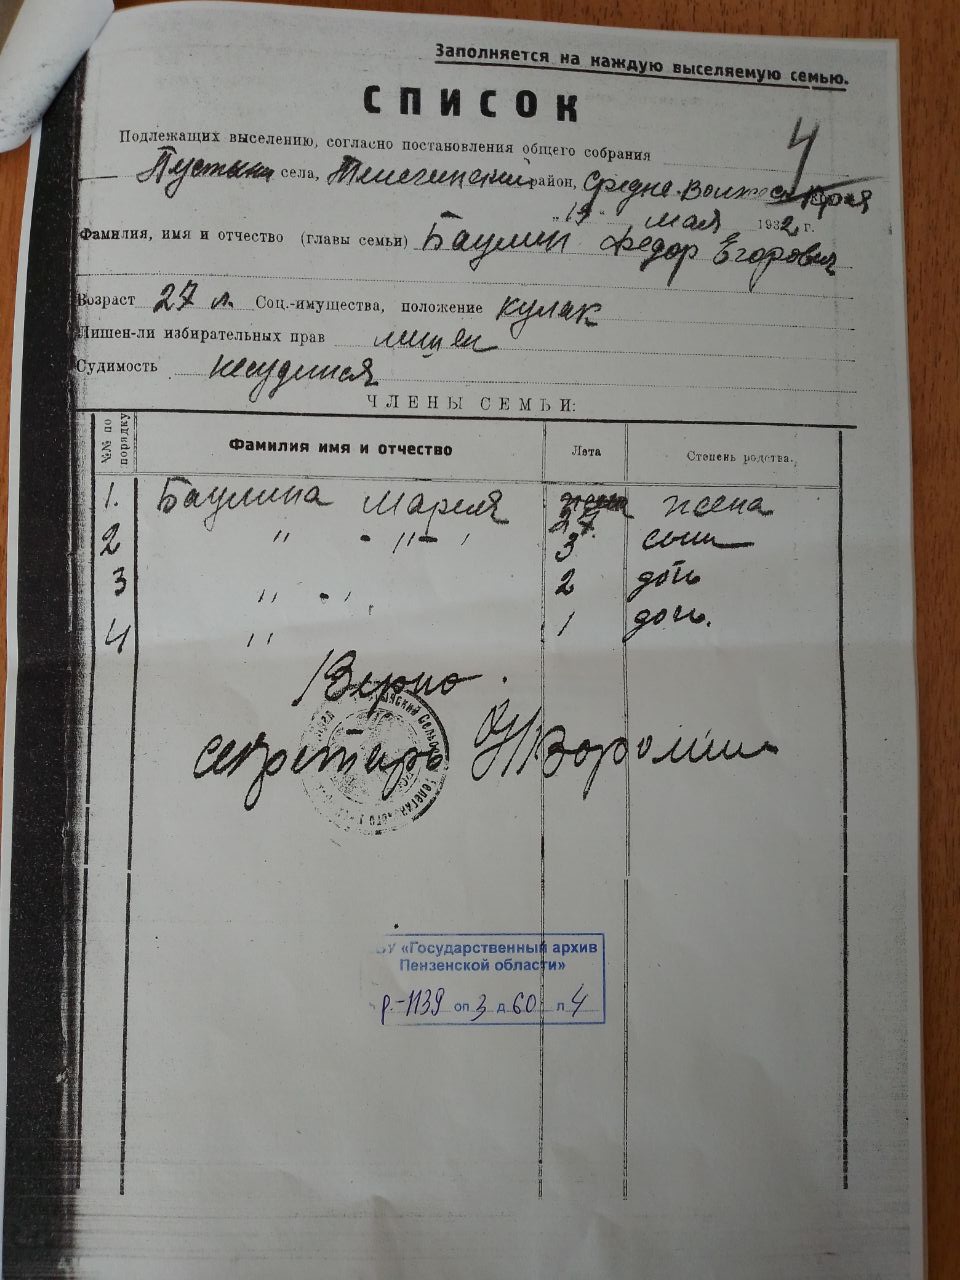 Заполняется на каждую выселяемую семью.
СПИСОК
4
Подлежащих выселению, согласно постановления общего собрания
села, Телегинский район, Средне-Волжск. Края
„19" мая 1932 г.
Фамилия, имя и отчество (главы семьи) Баулин Федор Егорович
Возраст 27 л. Соц.-имущества, положение кулак
Лишен-ли избирательных прав лишен
Судимость несудился
ЧЛЕНЫ СЕМЬИ:
№№ по порядку Фамилия имя и отчество Лета Степень родства.
1. Баулина Мария 27 жена
2 " - " - 3 сын
3 " - " 2 дочь
4 " 1 дочь.
Верно
секретарь
«Государственный архив
Пензенской области»
р-1139 оп 3 д 60 л 4